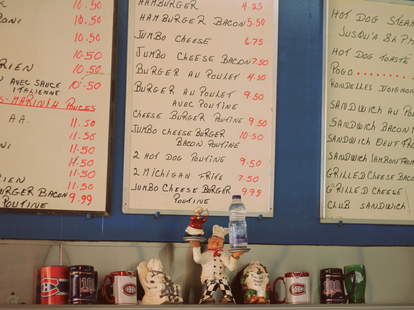 RONI 10.50
10.50
10.50
RIEN 10.50
AVEC SAUCE 10.50
ITALIENNE
S-MARINARA PRICES
A.A. 11.50
11.50
11.50
N 11.50
IEN 11.50
BURGER BACON 11.50
POUTINE 9.99
HAMBURGER 4.25
HAMBURGER BACON 5.50
JUMBO CHEESE 6.75
JUMBO CHEESE BACON 7.50
BURGER AU POULET 4.50
BURGER AU POULET 9.50
AVEC POUTINE
CHEESE BURGER POUTINE 9.50
JUMBO CHEESE BURGER 10.50
BACON POUTINE
2 HOT DOG POUTINE 9.50
2 MICHIGAN FRITE 7.50
JUMBO CHEESE BURGER 9.99
POUTINE
HOT DOG STEAM
JUSQU'A 8h P
HOT DOG TOASTÉ
POGO
RONDELLES D'OIGNON
SANDWICH AU PO
SANDWICH BACON
SANDWICH OEUF
SANDWICH JAMBON
GRILLED CHEESE BAC
GRILLED CHEESE
CLUB SANDWICH